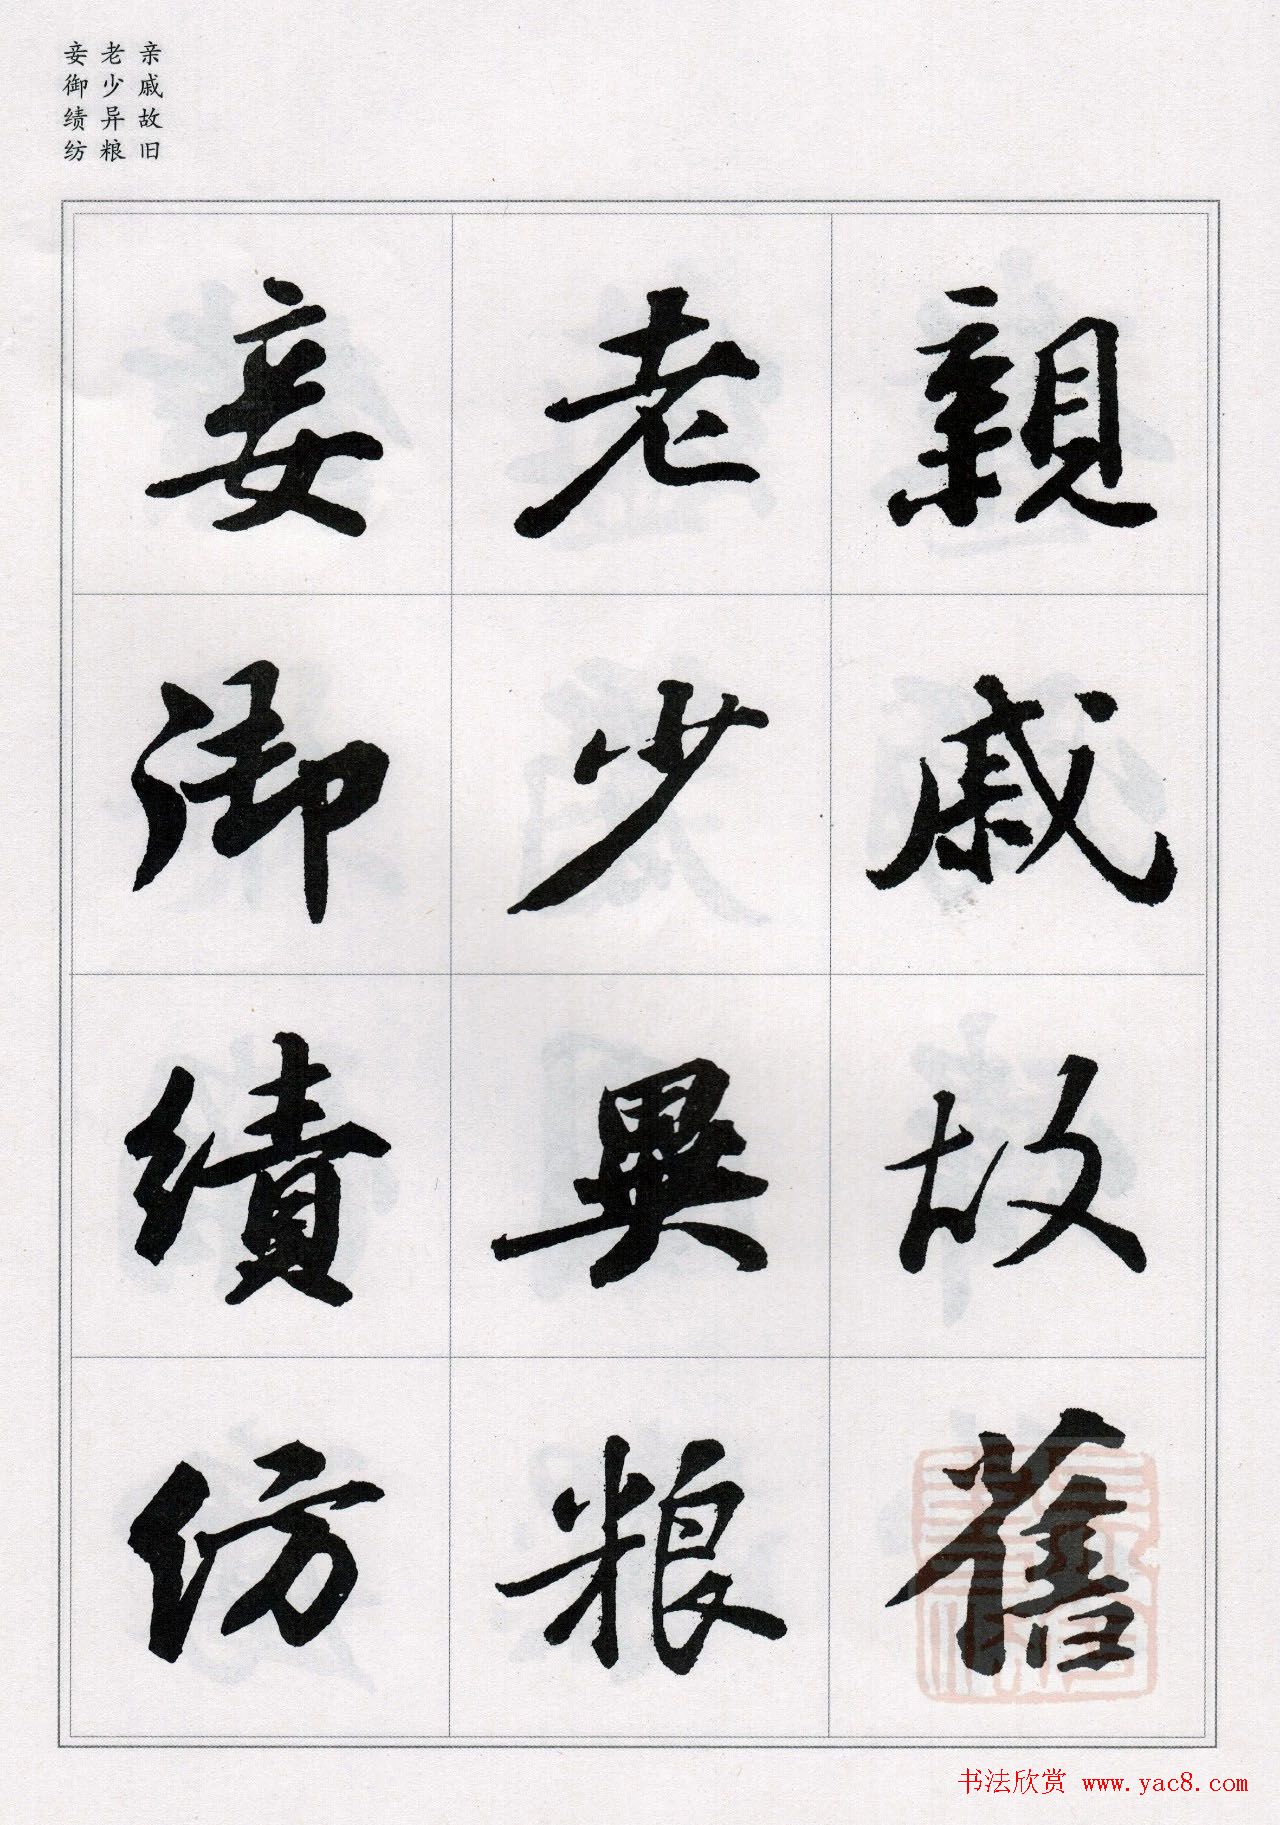 亲戚故旧
老少异粮
妾御绩纺
親戚故舊
老少異粮
妾御績紡
书法欣赏 www.yac8.com